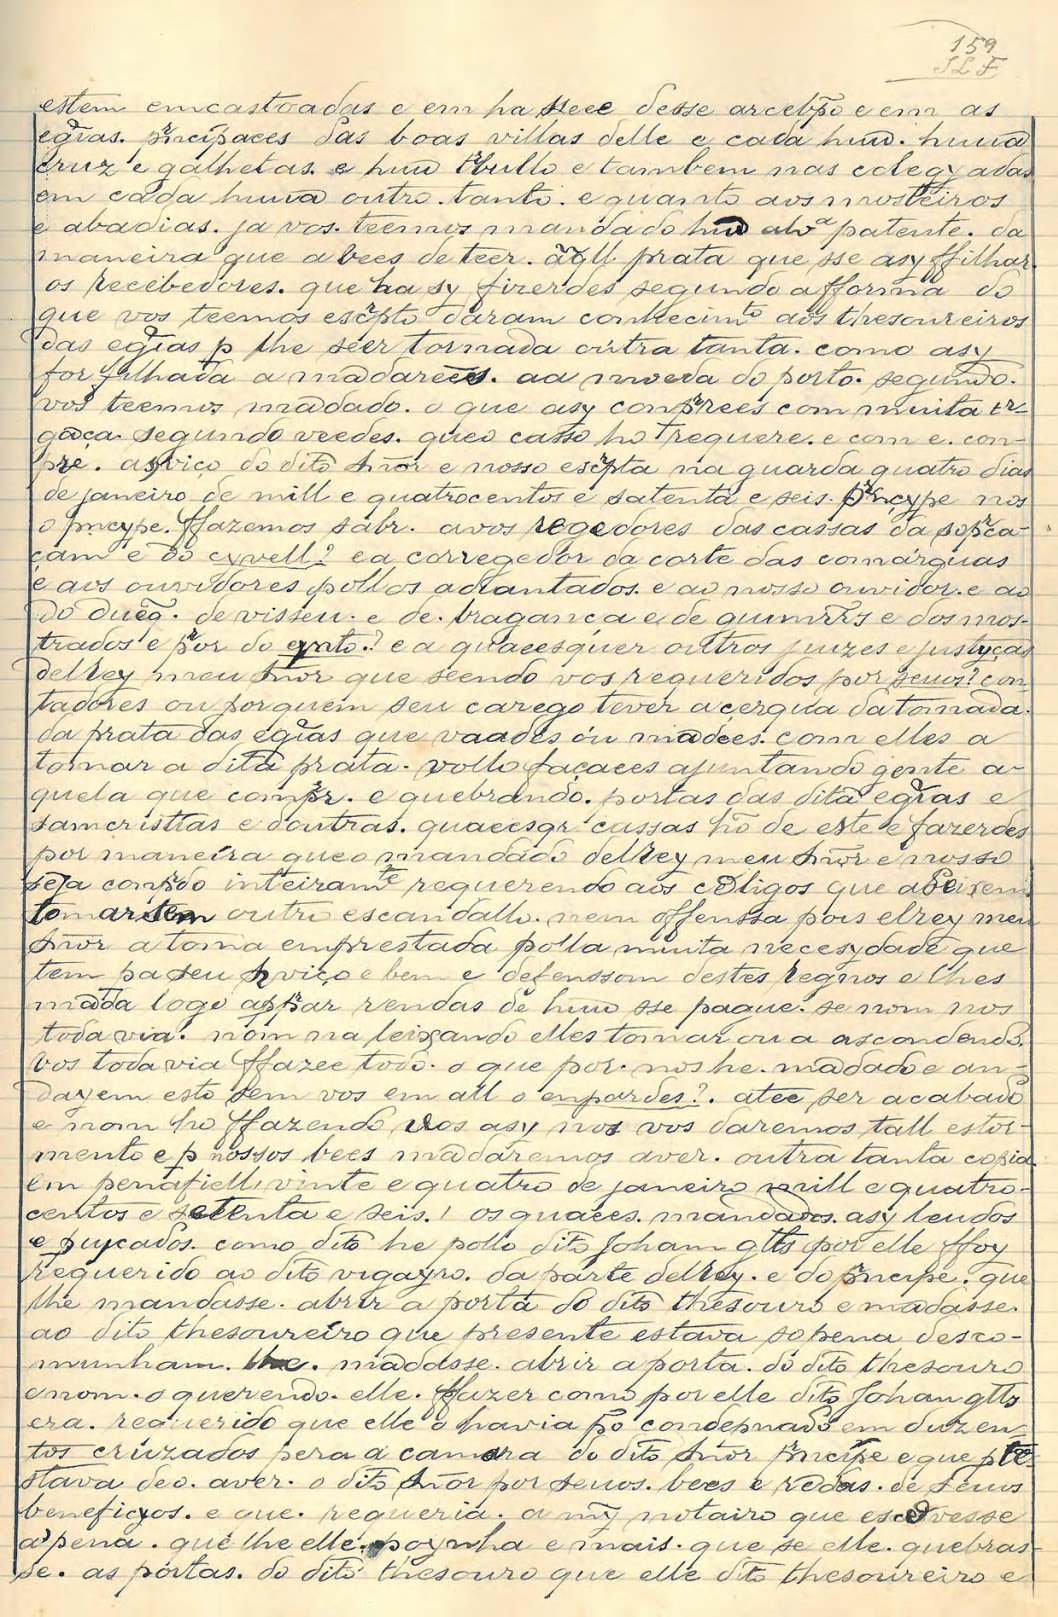 159
JLF
estem emcastoadas e em ha ssee desse arcebp̃o e em as
eg̃ias. pñcipaees das boas villas delle e cada huũ. huũa
cruz e galhetas. e huũ t̃bullo e tambem nas colegyadas
em cada huũa outro. tanto. e quanto aos mosteiros
e abadias. ja vos. teemos mandado huũ alvᵃ patente. da
maneira que abees de teer. ãq̃ll prata que sse asy ffilhar
os recebedores. que ha sy fizerdes segundo a fforma do
que vos teemos esc̃pto daram conhecimᵗᵒ aos thesoureiros
das eg̃ias p lhe seer tornada outra tanta. como asy
for filhada a mãdarees. aa moeda do porto. segundo.
vos teemos mãdado. o que asy conp̃rees com muita tr̃-
gãça. segundo veedes. queo casso ho requere. e com e. con-
pre. a sviço do dito sñor e nosso esc̃pta na guarda quatro dias
de janeiro de mill e quatrocentos e satenta e seis. pñcype nos
o pñcype. ffazemos sabr. avos regedores das cassas da sop̃ca-
çam e do cyvell? e a corregedor da corte das comárquas
e aos ouvidores pollos adiantados. e ao nosso ouvidor. e ao
do duq̃. de visseu. e de. bragança e de guimr̃r̃s e dos mos-
trados e p̃or do qnto.? e a quaeesquer outros juizes e justyças
delRey meu sñor que seendo vos requeridos por seuos? con
tadores ou por quem seu carego tever acerqua da tomada.
da prata das eg̃ias que vaades ou mãdees. com elles a
tomar a dita prata. vollo façaees ajuntando gente a-
quela que comp̃r. e quebrando. portas das dita eg̃ias e
samcristias e doutras. quaeesqr cassas hõ de este e fazerdes
por maneira queo mandado delRey meu sñor e nosso
seja conp̃do inteiramᵗᵉ requerendo aos c̃ligos que a leixem
tomar sem outro escandallo. nem offenssa pois elrey meu
sñor a toma emprestada polla muita necesydade que
tem pa seu sviço e bem e defenssom destes regnos e lhes
mãda logo ap̃ar rendas de huũ sse pague. se nom nos
toda via. nom na leixando elles tomar ou a ascondendo.
vos toda via ffazee todo. o que por. nos he. mãdado e an-
dayem esto sem vos em all o enpardes?. atee ser acabado
e nom ho ffazendo vos asy nos vos daremos tall estor-
mento e p nossos bees mãdaremos aver. outra tanta copia
em penafiell. vinte e quatro de janeiro mill e quatro-
centos e setenta e seis.! os quaees. mandados. asy leudos
e puycados. como dito he pollo dito Joham glls por elle ffoy
requerido ao dito vigayro. da parte delRey. e do pñcipe. que
lhe mandasse. abrir a porta do dito thesouro e mãdasse.
ao dito thesoureiro que presente estava sopena desco-
munham. lhe. mãdasse. abrir a porta. do dito thesouro
e nom. o querendo. elle. ffazer como por elle dito Johan glls
era. requerido que elle o havia p̃o condepnado em duzen-
tos cruzados pera a camara do dito sñor pñcipe e que p̃te
stava deo. aver. o dito sñor por seuos. bees e rẽdas. de seuos
beneficyos. e que. requeria. a mỹ notairo que escrevesse
a pena. que lhe elle. poynha e mais. que se elle. quebras-
se. as portas. do dito thesouro que elle dito thesoureiro e